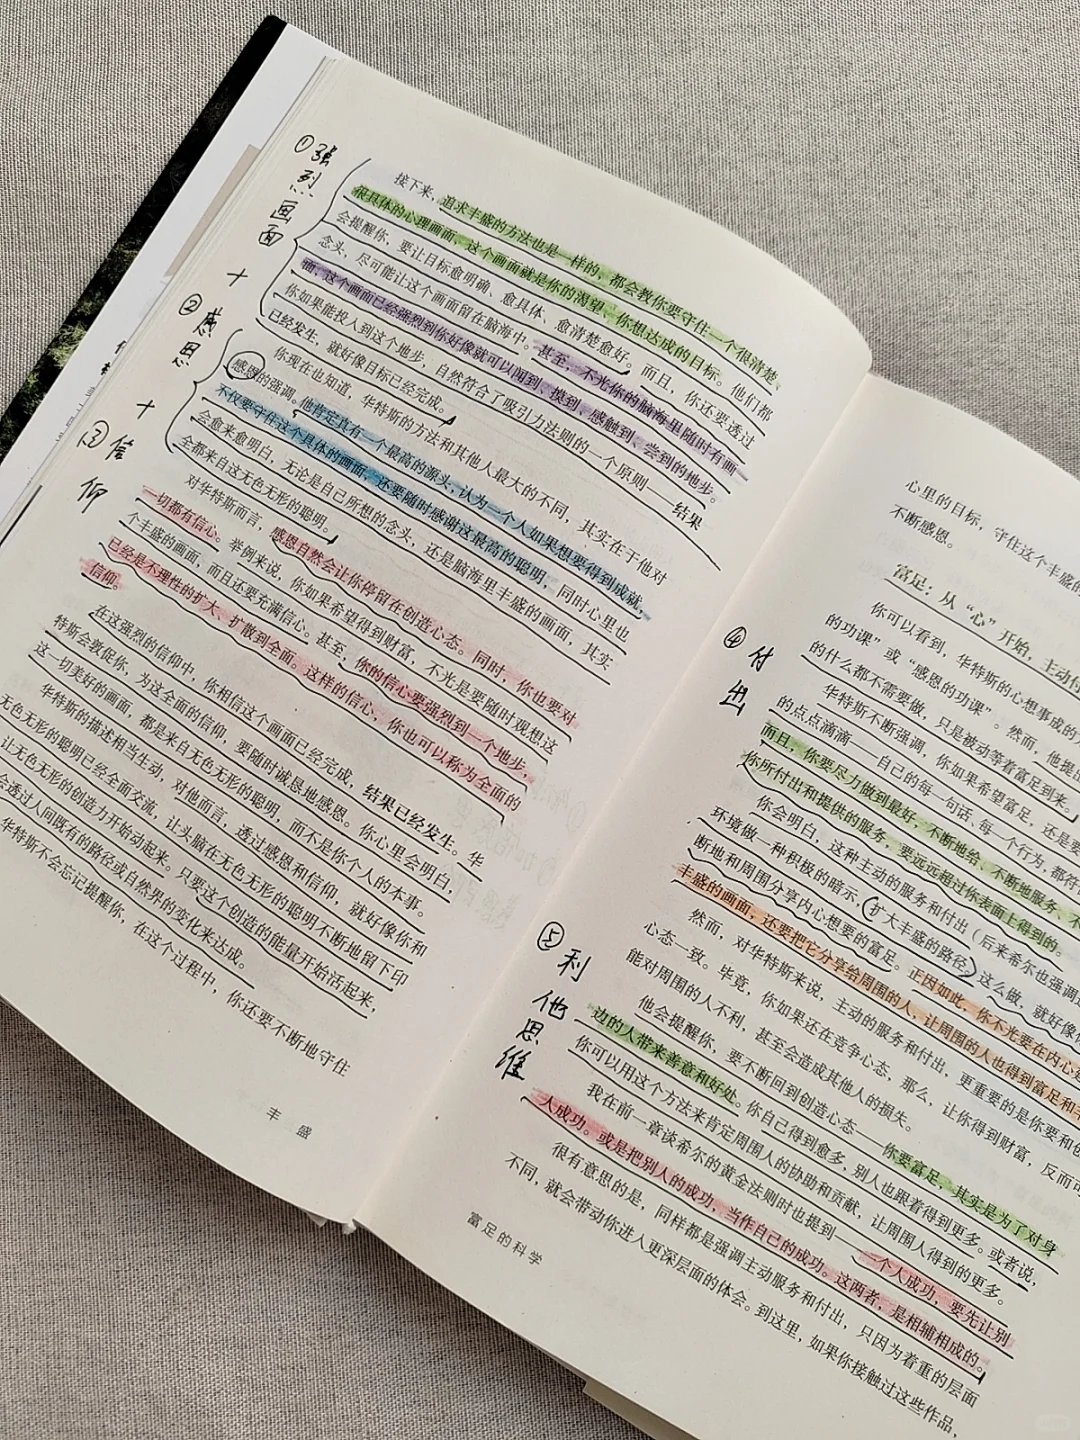 ①强烈画面
+
②感恩
+
③信仰
接下来，追求丰盛的方法也是一样的，都会教你要守住一个很清楚、
很具体的心理画面，这个画面就是你的渴望、你想达成的目标。他们都
会提醒你，要让目标愈明确、愈具体、愈清楚愈好。而且，你还要透过
念头，尽可能让这个画面留在脑海中。甚至，不光你的脑海里随时有画
面，这个画面已经强烈到你好像就可以闻到、摸到、感触到、尝到的地步。
你如果能投入到这个地步，自然符合了吸引力法则的一个原则——结果
已经发生，就好像目标已经完成。
你现在也知道，华特斯的方法和其他人最大的不同，其实在于他对
感恩的强调。他肯定真有一个最高的源头，认为一个人如果想要得到成就，
不仅要守住这个具体的画面，还要随时感谢这最高的聪明，同时心里也
会愈来愈明白，无论是自己所想的念头，还是脑海里丰盛的画面，其实
全都来自这无色无形的聪明。
对华特斯而言，感恩自然会让你停留在创造心态。同时，你也要对
一切都有信心。举例来说，你如果希望得到财富，不光是要随时观想这
个丰盛的画面，而且还要充满信心。甚至，你的信心要强烈到一个地步，
已经是不理性的扩大、扩散到全面。这样的信心，你也可以称为全面的
信仰。
在这强烈的信仰中，你相信这个画面已经完成，结果已经发生。华
特斯会敦促你，为这全面的信仰，要随时诚恳地感恩。你心里会明白，
这一切美好的画面，都是来自无色无形的聪明，而不是你个人的本事。
华特斯的描述相当生动，对他而言，透过感恩和信仰，就好像你和
无色无形的聪明已经全面交流，让头脑在无色无形的聪明不断地留下印
让无色无形的创造力开始动起来。只要这个创造的能量开始活起来，
会透过人间既有的路径或自然界的变化来达成。
华特斯不会忘记提醒你，在这个过程中，你还要不断地守住
丰盛
心里的目标，守住这个丰盛的
不断感恩。
富足：从“心”开始，主动付
④付出
你可以看到，华特斯的心想事成的
的功课”或“感恩的功课”。然而，他提
的什么都不需要做，只是被动等着富足到来。
华特斯不断强调，你如果希望富足，还是要
的点点滴滴——自己的每一句话、每一个行为，都符
而且，你要尽力做到最好，不断地给、不断地服务，不
你所付出和提供的服务，要远远超过你表面上得到的。
你会明白，这种主动的服务和付出（后来希尔也强调
环境做一种积极的暗示，（扩大丰盛的路径）这么做，就好像你
断地和周围分享内心想要的富足。正因如此，你不光要在内心
丰盛的画面，还要把它分享给周围的人，让周围的人也得到富足和丰
⑤利他思维
然而，对华特斯来说，主动的服务和付出，更重要的是你要和
心态一致。毕竟，你如果还在竞争心态，那么，让你得到财富，反而可
能对周围的人不利，甚至会造成其他人的损失。
他会提醒你，要不断回到创造心态——你要富足，其实是为了对身
边的人带来善意和好处。你自己得到愈多，别人也跟着得到更多。或者说，
你可以用这个方法来肯定周围人的协助和贡献，让周围人得到的更多。
我在前一章谈希尔的黄金法则时也提到——一个人成功，要先让别
人成功。或是把别人的成功，当作自己的成功。这两者，是相辅相成的。
很有意思的是，同样都是强调主动服务和付出，只因为着重的层面
不同，就会带动你进入更深层面的体会。到这里，如果你接触过这些作品，
富足的科学